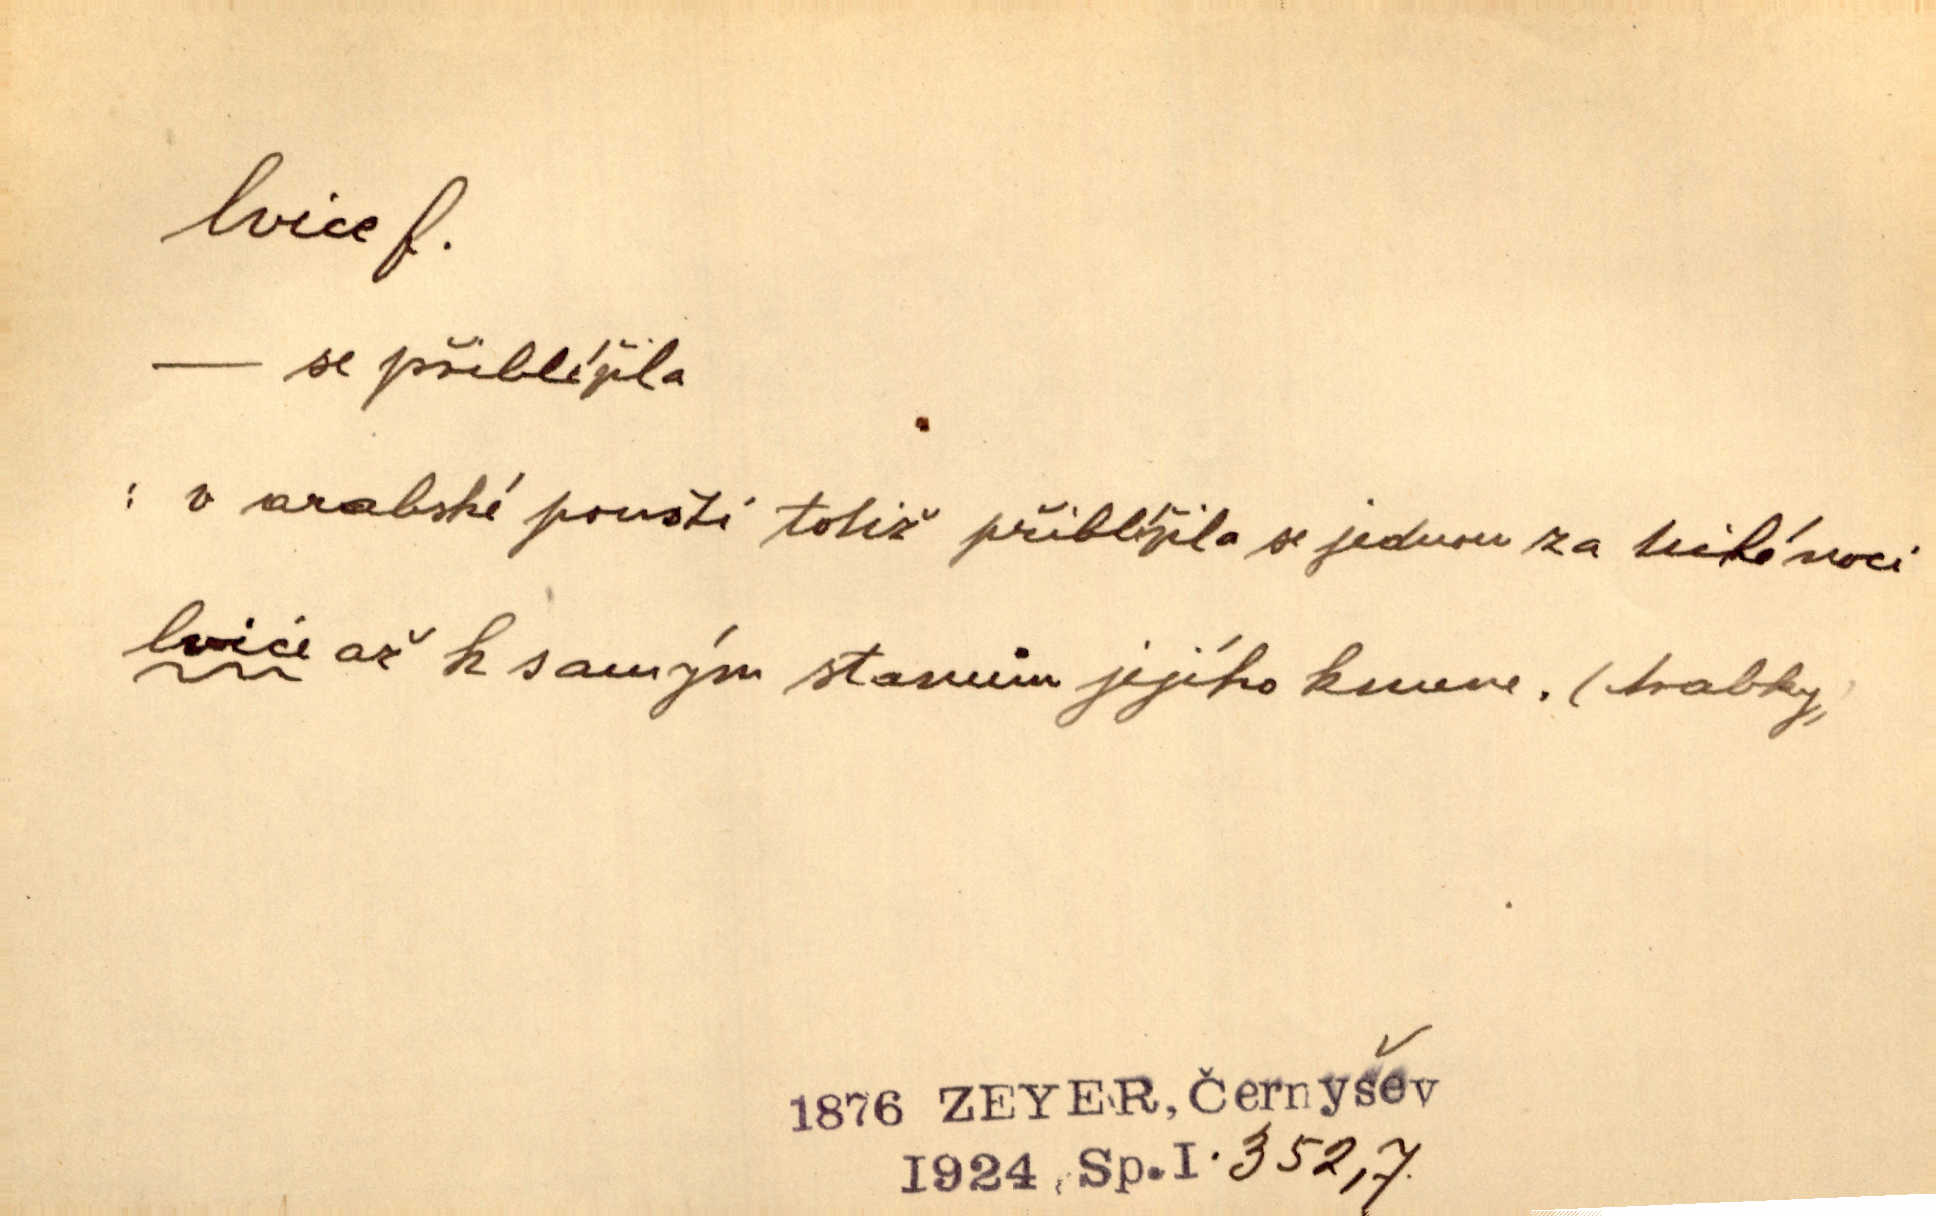 lvice f.
— se přiblížila
: v arabské poušti totiž přiblížila se jednou za tiché noci
lvice až k samým stanům jejího kmene. (Arabky)
1876 ZEYER, Černyšev
1924, Sp.I. 352,7.